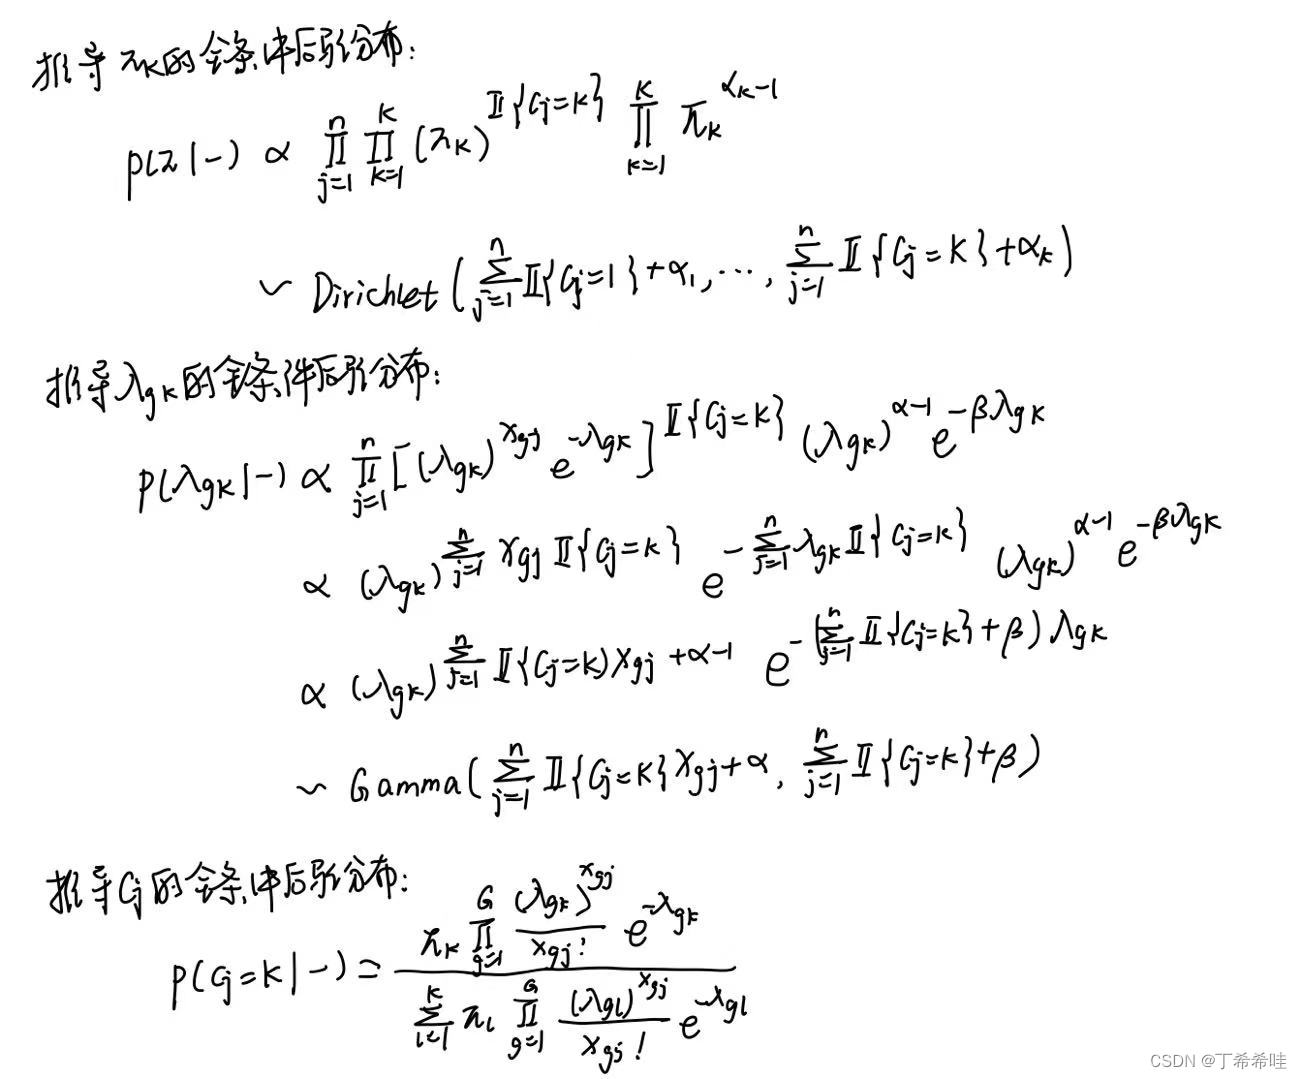 推导πk的全条件后验分布:
p(π|−) ∝ ∏_{j=1}^{n} ∏_{k=1}^{K} (πk)^{𝕀{Cj=k}} ∏_{k=1}^{K} πk^{αk−1}
~ Dirichlet(∑_{j=1}^{n} 𝕀{Cj=1}+α1, ⋯, ∑_{j=1}^{n} 𝕀{Cj=K}+αk)
推导λgk的全条件后验分布:
p(λgk|−) ∝ ∏_{j=1}^{n} [(λgk)^{xgj} e^{−λgk}]^{𝕀{Cj=k}} (λgk)^{α−1} e^{−βλgk}
∝ (λgk)^{∑_{j=1}^{n} xgj 𝕀{Cj=k}} e^{−∑_{j=1}^{n} λgk 𝕀{Cj=k}} (λgk)^{α−1} e^{−βλgk}
∝ (λgk)^{∑_{j=1}^{n} 𝕀{Cj=k)xgj+α−1} e^{−(∑_{j=1}^{n} 𝕀{Cj=k}+β)λgk}
~ Gamma(∑_{j=1}^{n} 𝕀{Cj=k}xgj+α, ∑_{j=1}^{n} 𝕀{Cj=k}+β)
推导Cj的全条件后验分布:
p(Cj=k|−) = \frac{πk ∏_{g=1}^{G} \frac{(λgk)^{xgj}}{xgj!} e^{−λgk}}{∑_{l=1}^{K} πl ∏_{g=1}^{G} \frac{(λgl)^{xgj}}{xgj!} e^{−λgl}}
CSDN @丁希希哇